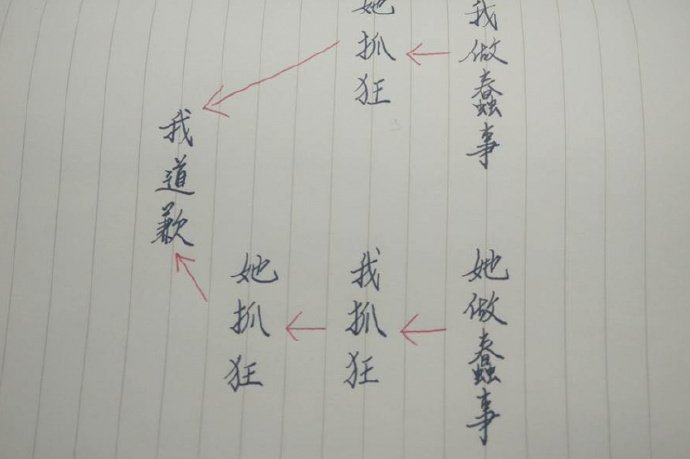 我做蠢事
她抓狂
她做蠢事
我抓狂
她抓狂
我道歉